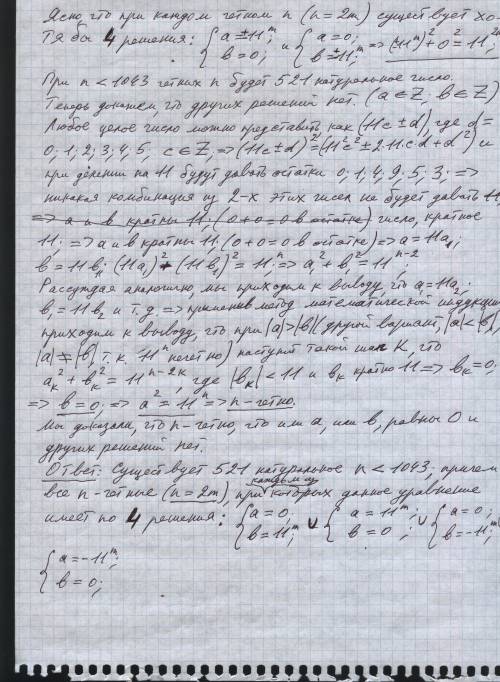 Ясно, что при каждом четном n (n=2m) существует хо-
тя бы 4 решения: { a=±11^m; b=0; и { a=0; b=±11^m; => (11^m)^2+0^2=11^2m
При n<1043 четных n будет 521 натуральное число.
Теперь докажем, что других решений нет. (a∈Z, b∈Z)
Любое целое число можно представить как (11c±d), где d=
0; 1; 2; 3; 4; 5, c∈Z, => (11c±d)^2=(11^2c^2±2·11·c·d+d^2) и
при делении на 11 будут давать остатки 0; 1; 4; 9; 5; 3; =>
никакая комбинация из 2-х этих чисел не будет давать 11
=> a и b кратны 11; (0+0=0 в остатке) число, кратное
11; => a и b кратны 11, (0+0=0 в остатке) => a=11a₁;
b=11b₁; (11a₁)^2+(11b₁)^2=11^n; => a₁^2+b₁^2=11^n-2
Рассуждая аналогично, мы приходим к выводу, что a₁=11a₂;
b₁=11b₂ и т.д. => применив метод математической индукции
приходим к выводу, что при |a|>|b| (другой вариант, |a|<|b|,
|a|≠|b|, т.к. 11^n нечетно) наступит такой шаг K, что
a_k^2+b_k^2=11^n-2k, где |b_k|<11 и b_k кратно 11 => b_k=0;
=> b=0; => a^2=11^n => n-четно.
Мы доказали, что n-четно, что или a, или b, равны 0 и
других решений нет.
Ответ: Существует 521 натуральное n<1043, причем
каждым из
все n-четные (n=2m), при которых данное уравнение
имеет по 4 решения: { a=0; b=11^m; ∪ { a=11^m; b=0; ∪ { a=0; b=-11^m; ∪
{ a=-11^m;
b=0;